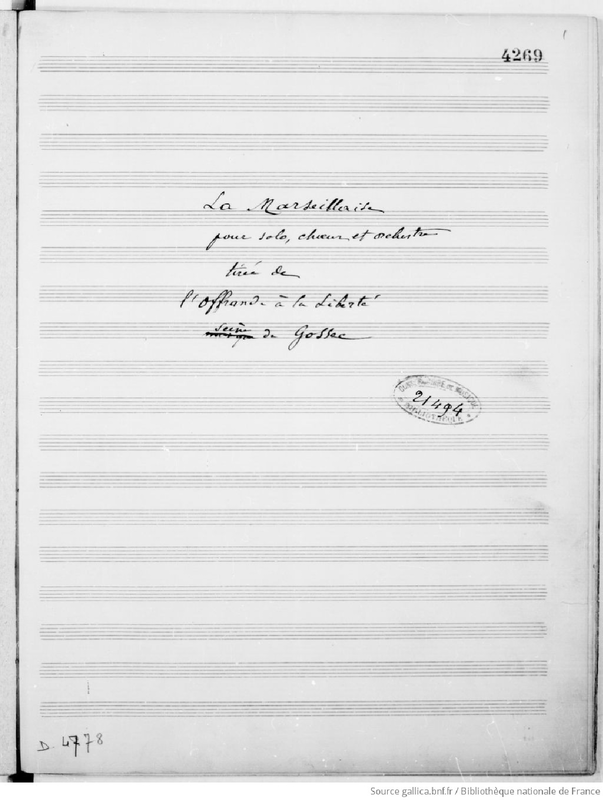 4269
La Marseillaise
pour solo, chœur et orchestre
tirée de
l'Offrande à la Liberté
Scène de Gossec
21494
D. 4778
Source gallica.bnf.fr / Bibliothèque nationale de France